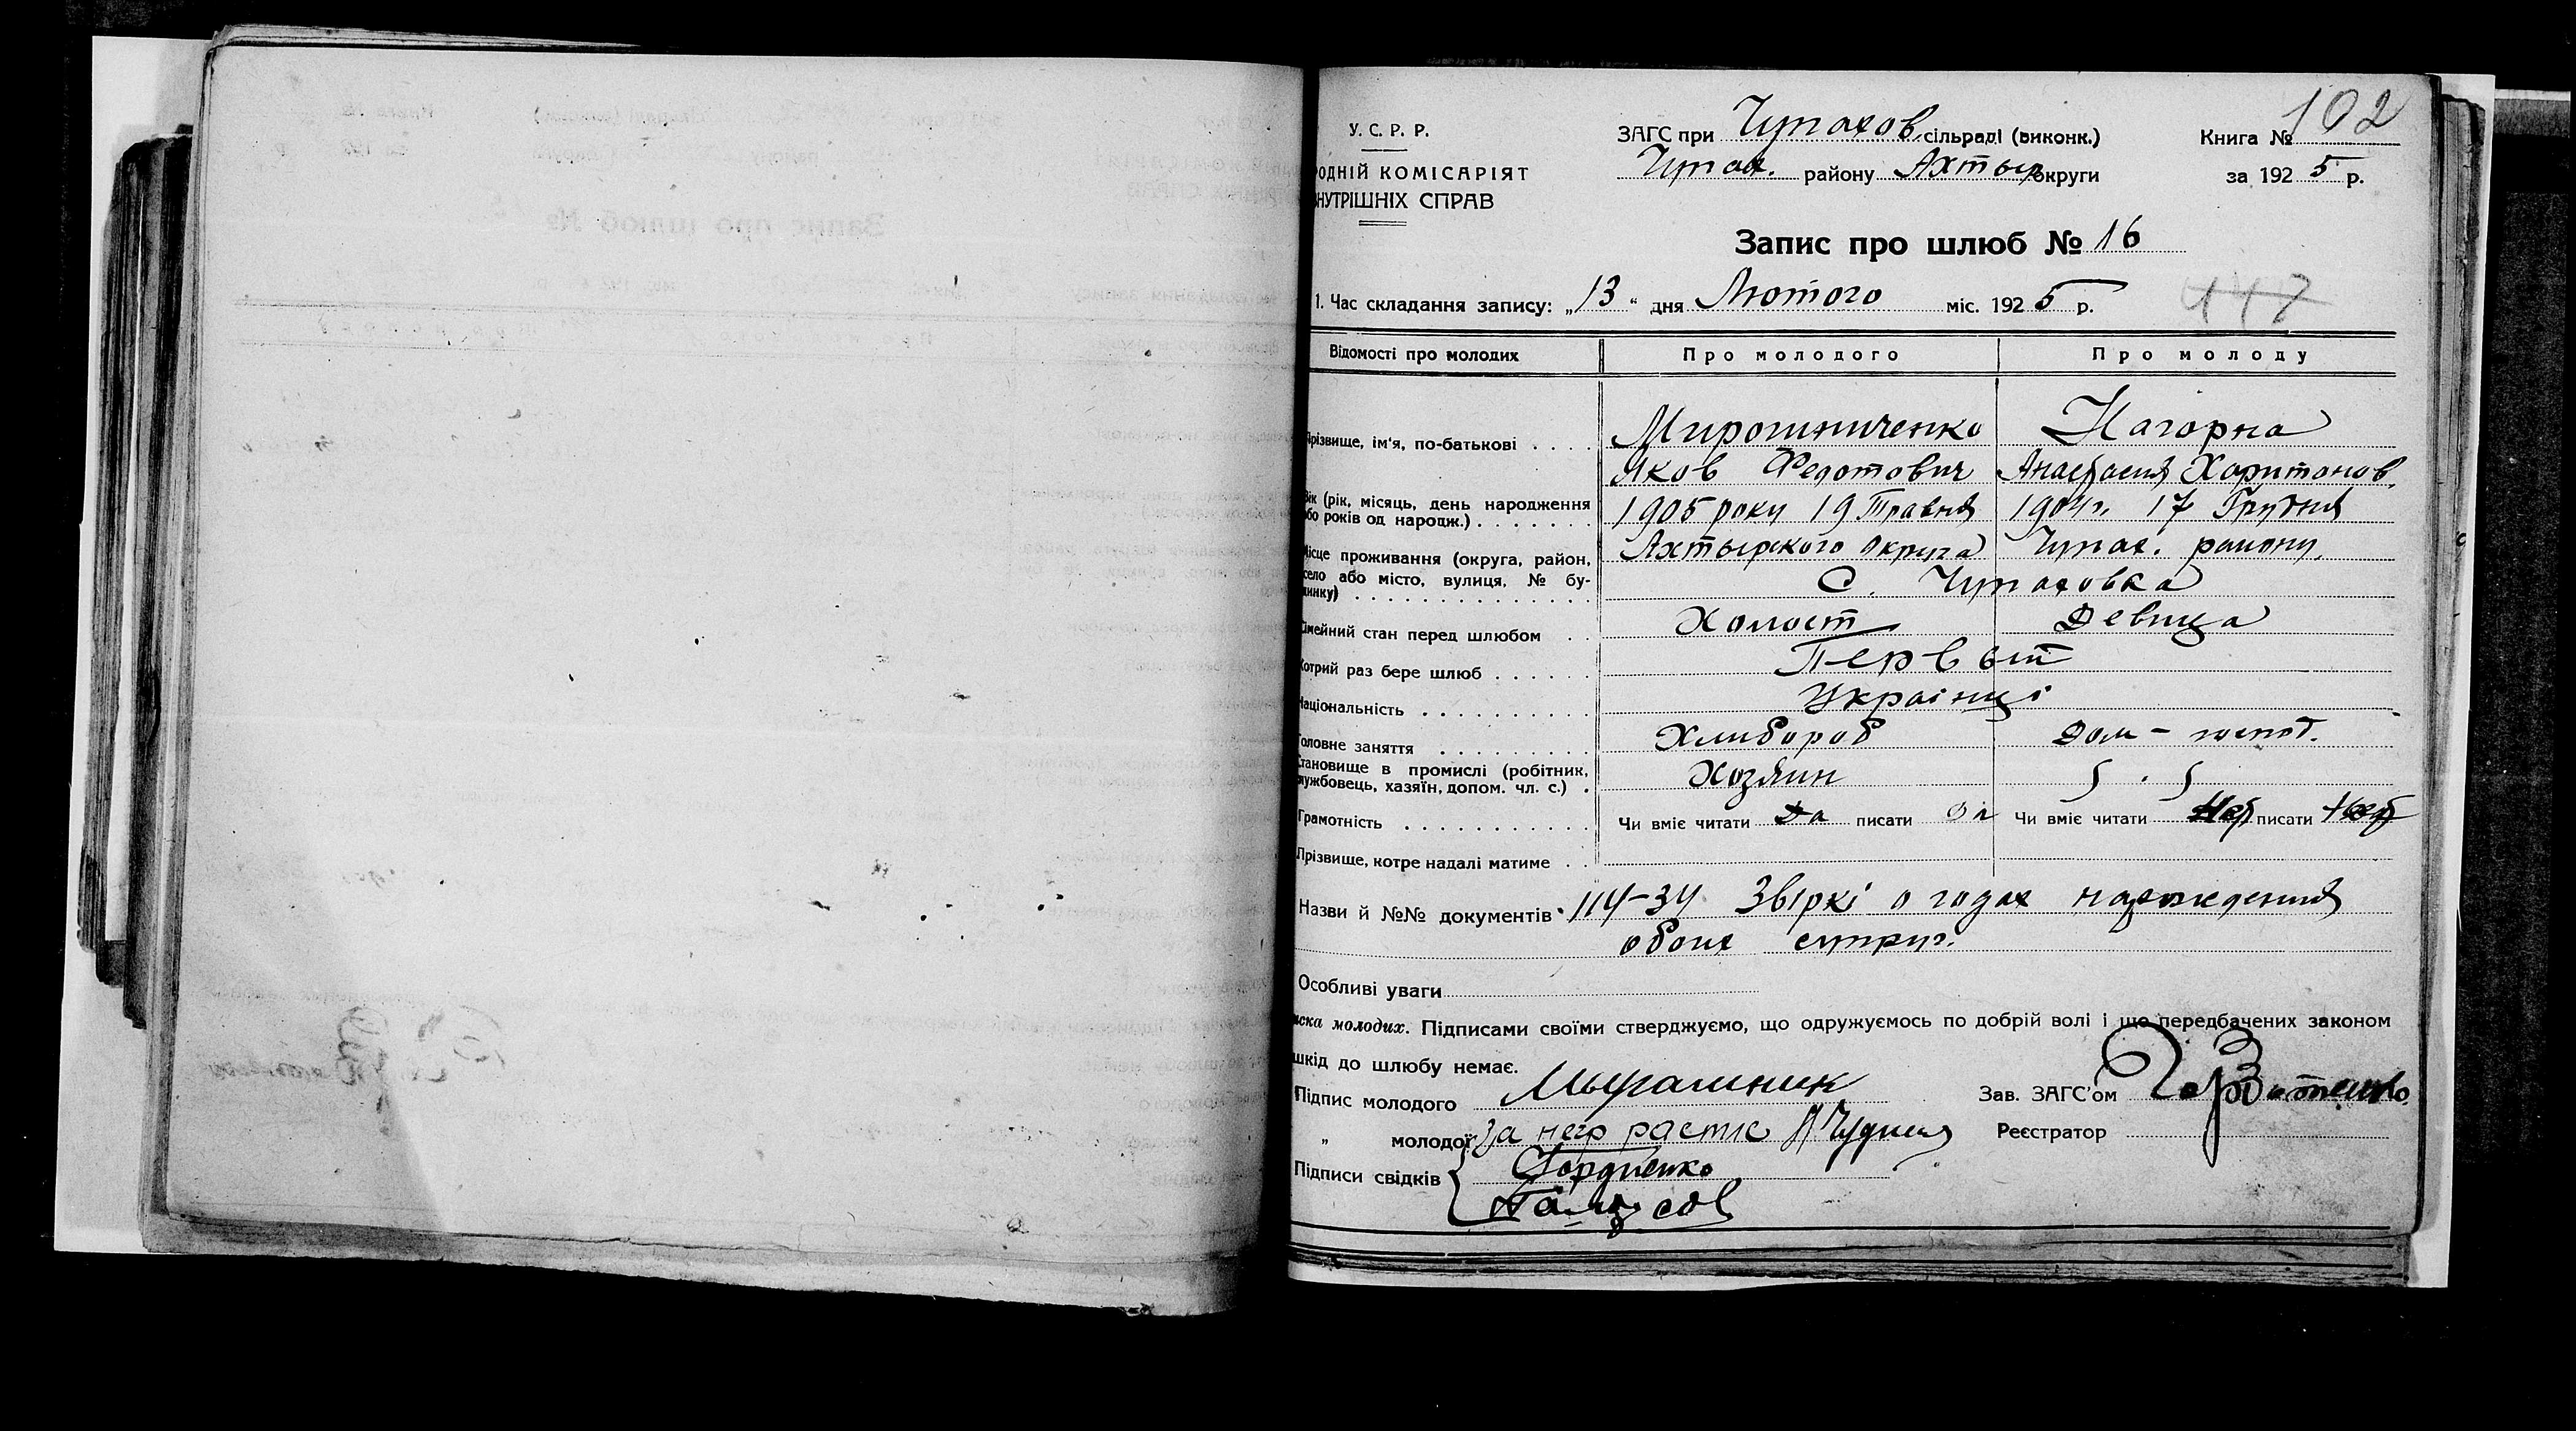 У. С. Р. Р.
РОДНІЙ КОМІСАРІЯТ
НУТРІШНІХ СПРАВ
ЗАГС при Чупахов. сільраді (виконк.)
Чупах. району Ахтыр. округи
Книга № 102
за 1925 р.
Запис про шлюб № 16
1. Час складання запису: „13“ дня Лютого міс. 1925 р.
447
Відомості про молодих Про молодого Про молоду
Прізвище, ім'я, по-батькові . . . . Мирошниченко Нагорна
Яков Федотович Анастасия Харитонов.
Вік (рік, місяць, день народження 1905 року 19 Травня 1904 р. 17 Грудня
або років од народж.) . . . . . . .
Місце проживання (округа, район, Ахтырского Округа Чупах. району.
село або місто, вулиця, № бу-
динку) . . . . . . . . . . . . . . С. Чупаховка
Сімейний стан перед шлюбом . . Холост Девица
Котрий раз бере шлюб . . . . . . Первый
Національність . . . . . . . . . . Украінці
Головне заняття . . . . . . . . . Хлибороб Дом - господ.
Становище в промислі (робітник,
службовець, хазяїн, допом. чл. с.) . Хозяин
Грамотність . . . . . . . . . . . Чи вміє читати Да писати Да Чи вміє читати Нет писати Нет
Прізвище, котре надалі матиме . .
Назви й №№ документів 114-34 Звіркі о годах нарождения
обоих супруг.
Особливі уваги
иска молодих. Підписами своїми стверджуємо, що одружуємось по добрій волі і що передбачених законом
шкід до шлюбу немає.
Підпис молодого
Зав. ЗАГС'ом
„ молодої За нею
Реєстратор
Підписи свідків Гордиенко